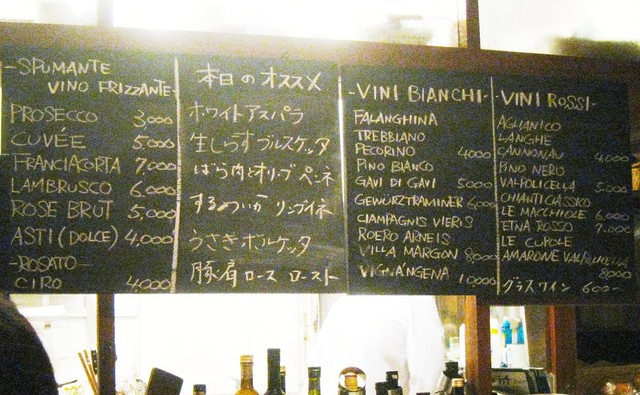 -SPUMANTE
VINO FRIZZANTE-
PROSECCO 3,000
CUVÉE 5,000
FRANCIACORTA 7,000
LAMBRUSCO 6,000
ROSE BRUT 5,000
ASTI (DOLCE) 4,000
-ROSATO-
CIRO 4,000
本日のオススメ
ホワイトアスパラ
生しらすブルスケッタ
ばら肉とオリーブペンネ
するめいか リングイネ
うさぎポルケッタ
豚肩ロース ロースト
-VINI BIANCHI-
FALANGHINA
TREBBIANO
PECORINO 4000
PINO BIANCO
GAVI DI GAVI 5000
GEWÜRZTRAMINEK 6000
CIAMPAGNIS VIERIS
ROERO ARNEIS
VILLA MARGON 8000
VIGNANGENA 10,000
-VINI ROSSI-
AGLIANICO
LANGHE
CANNONAU 4,000
PINO NERO
VALPOLICELLA 5,000
CHIANTI CLASSICO
LE MACCHIOLE 6,000
ETNA ROSSO 7,000
LE CUPOLE
AMARONE VALPOLICELLA
8000
グラスワイン 600-